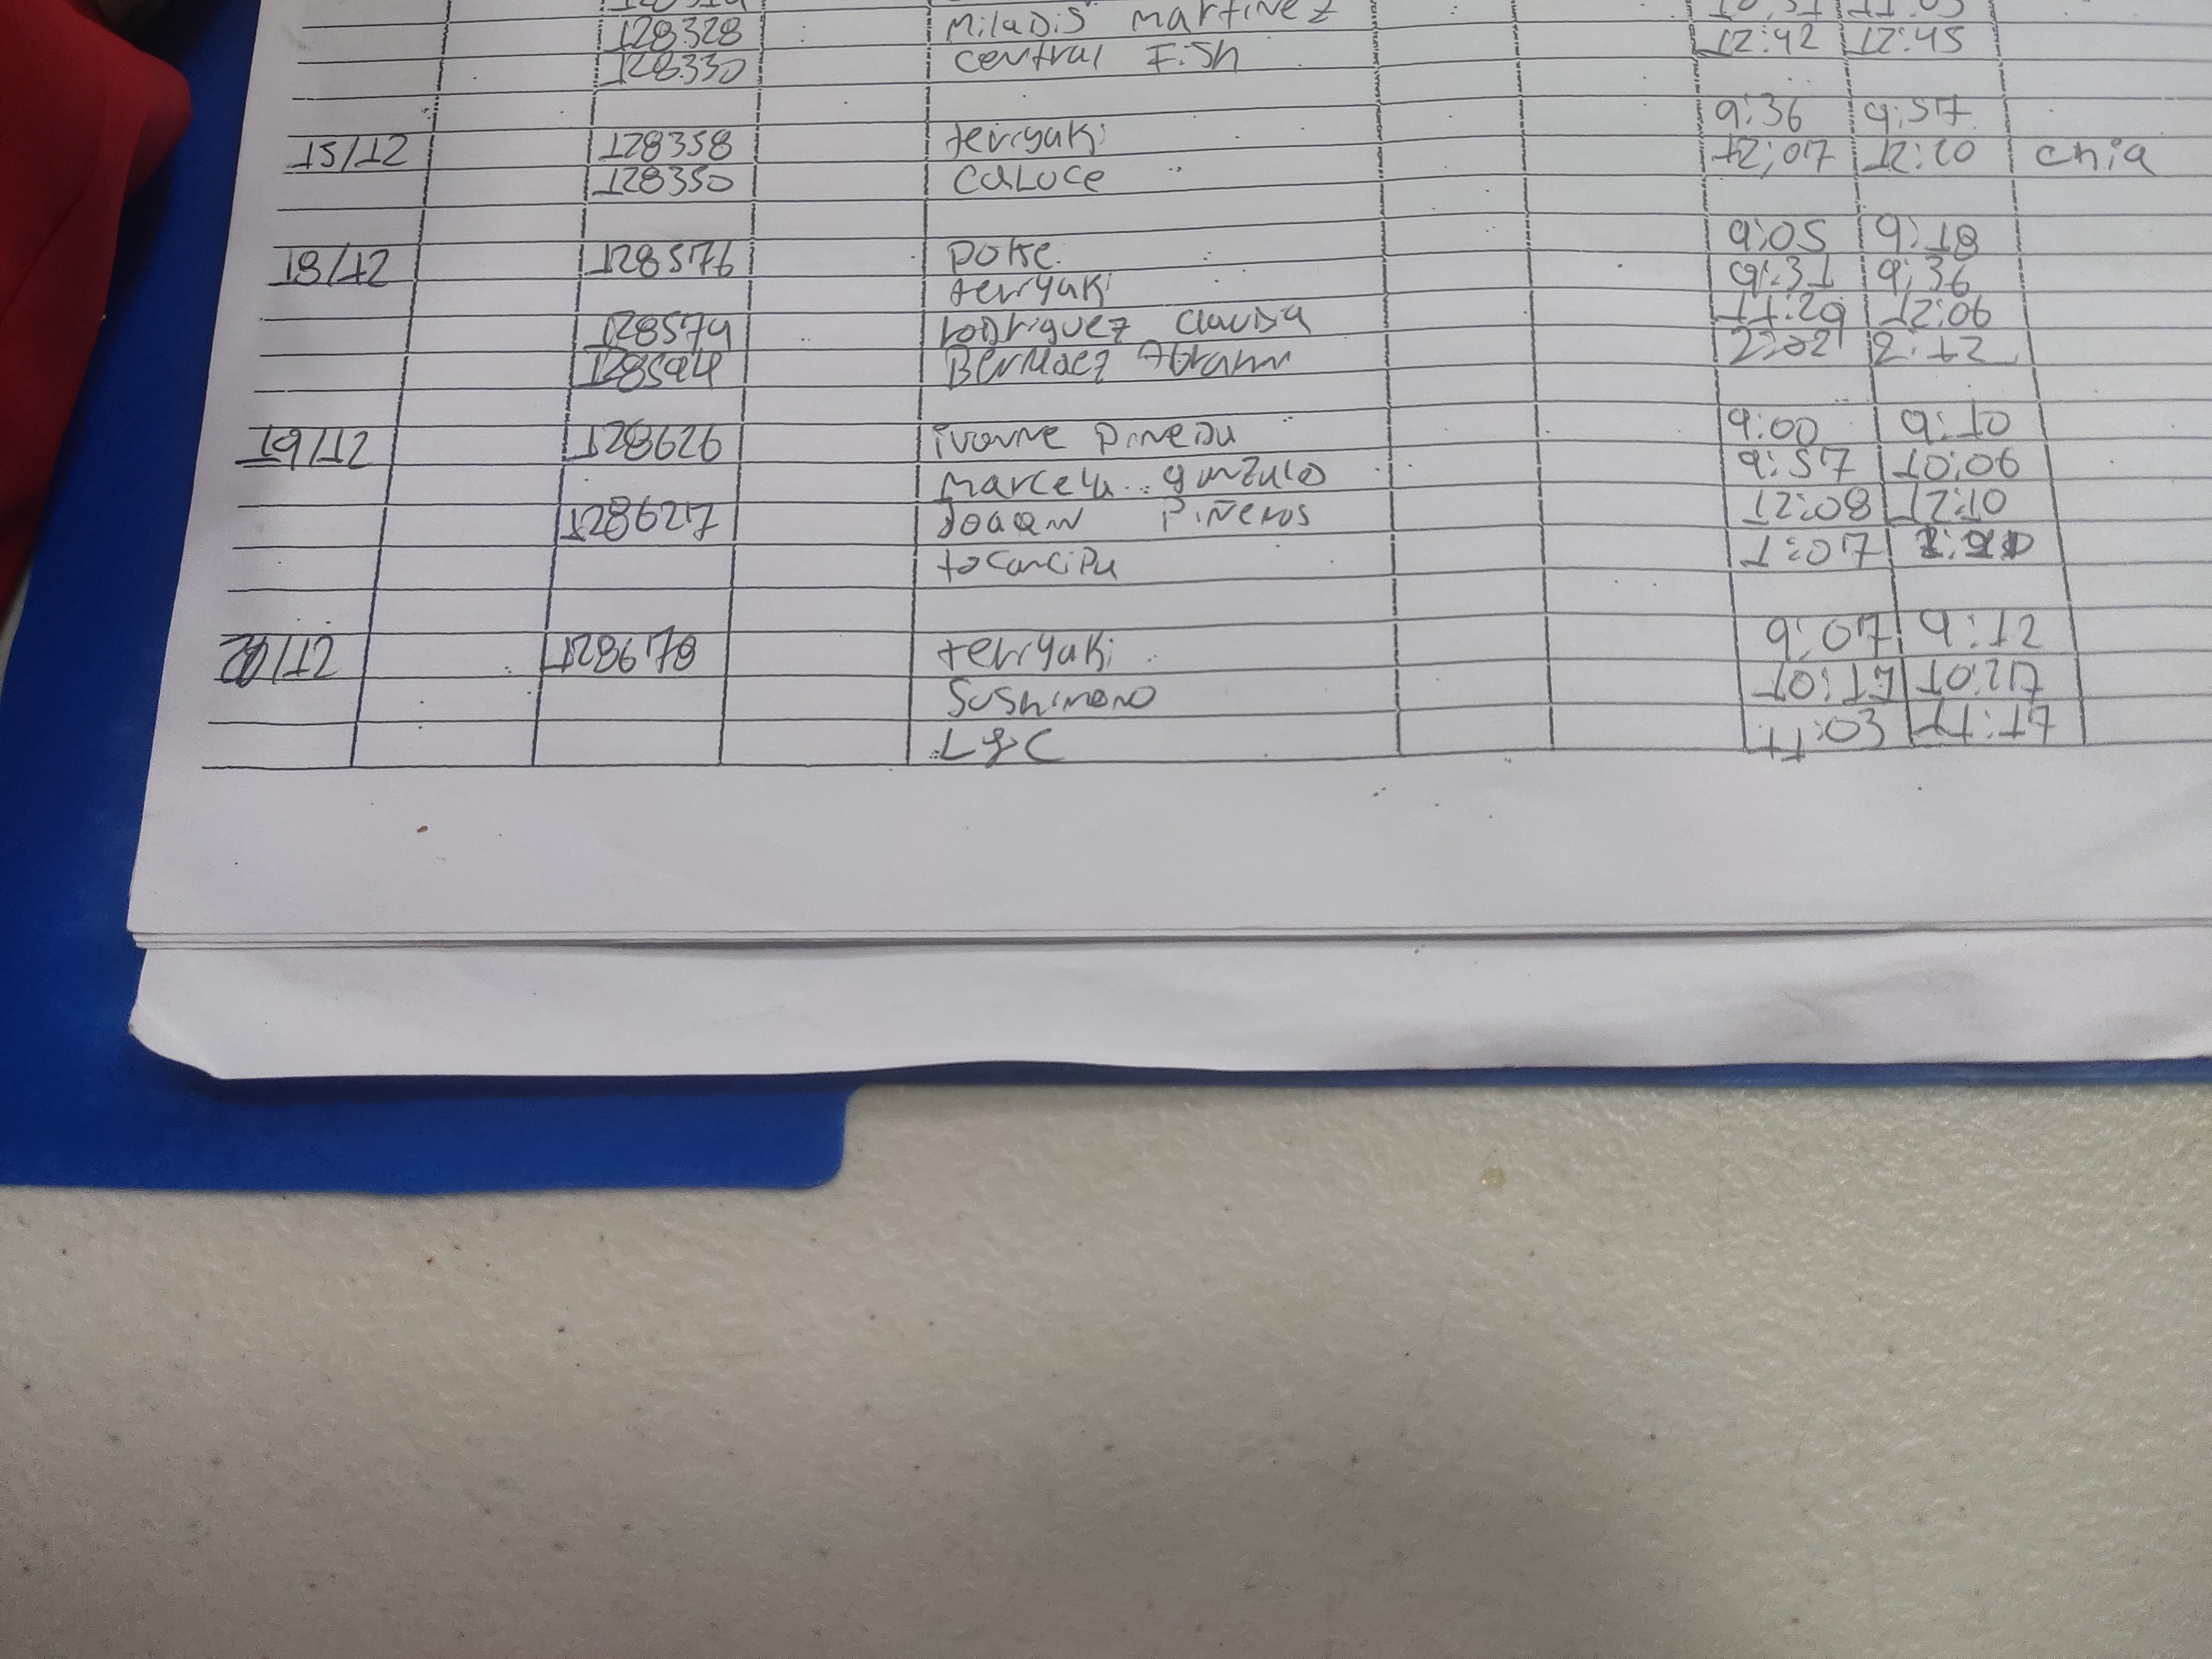 128328 Miladis Martinez
128330 central Fish 12:42 12:45
15/12 128358 teriyaki 9:36 9:57
128350 caluce 12:07 12:20 chia
18/12 128576 poke 9:05 9:18
terryaki 9:31 9:36
128579 rodriguez claudia 11:29 12:06
128594 Bermdez Abram 2:02 2:12
19/12 128626 ivonne pineda 9:00 9:10
marcela gonzalo 9:57 10:06
128627 Joaqn Piñeros 12:08 12:10
tocancipa 1:07
/12 128678 terryaki 9:07 9:12
Sushimono 10:17 10:27
L&C 11:03 11:17